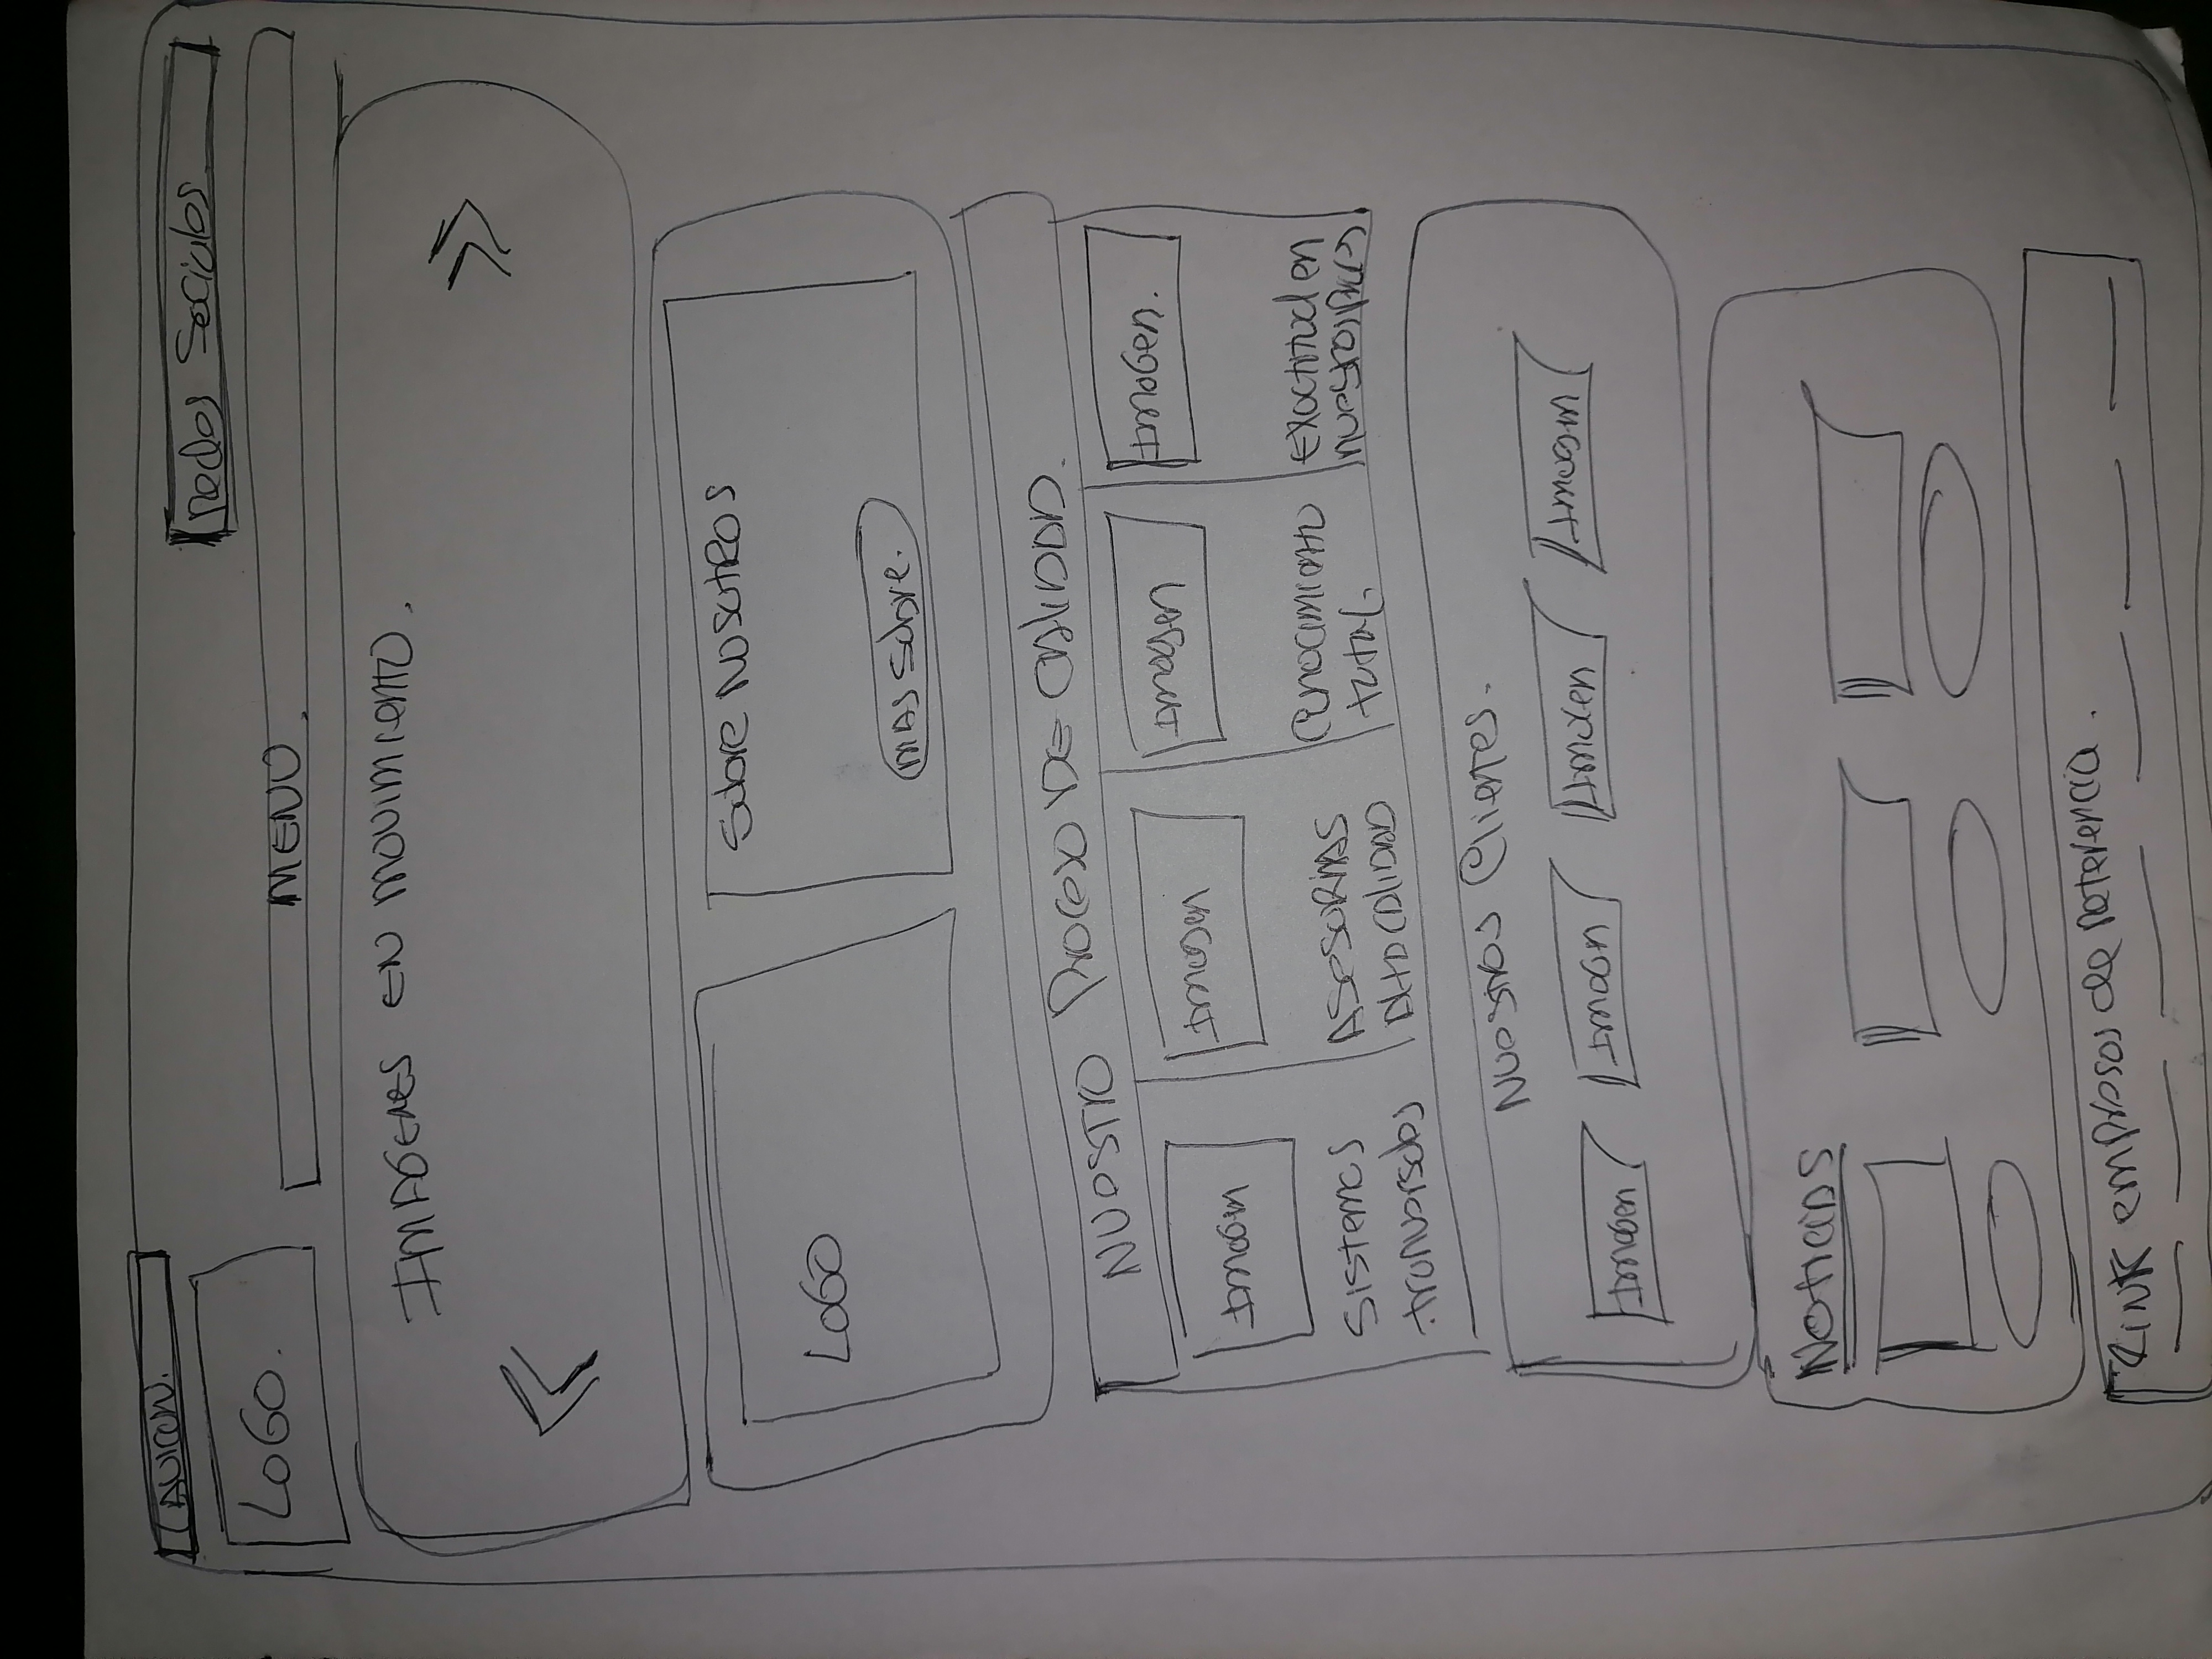 Redes Sociales
LOGO.
MENU.
IMAGENES EN MOVIMIENTO.
LOGO
Sobre NOSOTROS
MAS Sobre.
NUESTRO PROCESO DE CALIDAD.
Imagen
Imagen
Imagen
Imagen.
Sistemas
transversales
ASESORIAS
Alta CALIDAD
Conocimiento
total.
Exactitud en
nuestros
Nuestros Clientes.
Imagen
Imagen
Imagen
Imagen
Noticias
Link empresas de referencia.